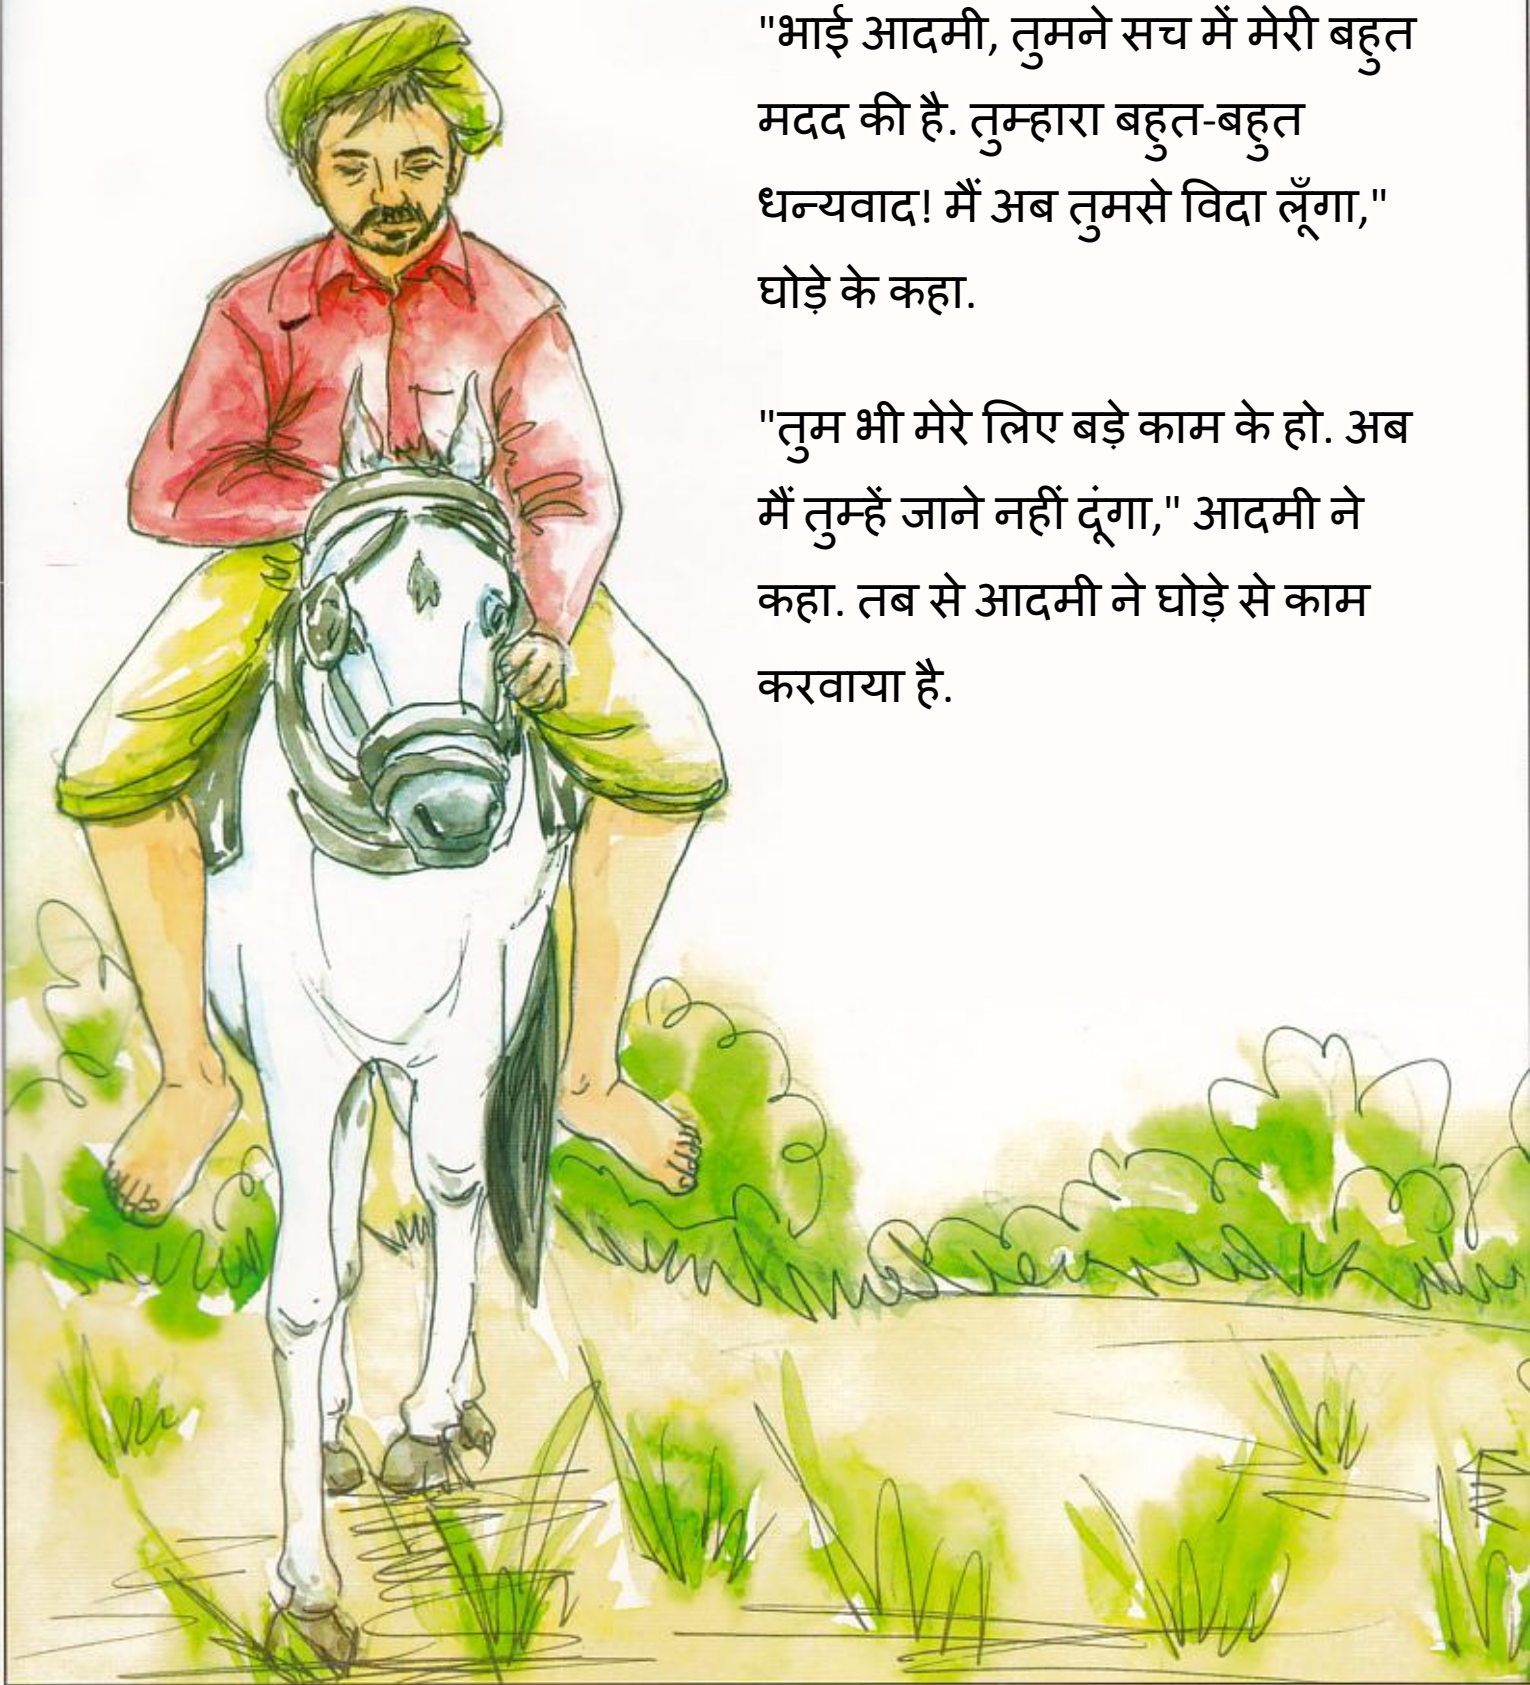 "भाई आदमी, तुमने सच में मेरी बहुत
मदद की है. तुम्हारा बहुत-बहुत
धन्यवाद! मैं अब तुमसे विदा लूँगा,"
घोड़े के कहा.
"तुम भी मेरे लिए बड़े काम के हो. अब
मैं तुम्हें जाने नहीं दूंगा," आदमी ने
कहा. तब से आदमी ने घोड़े से काम
करवाया है.